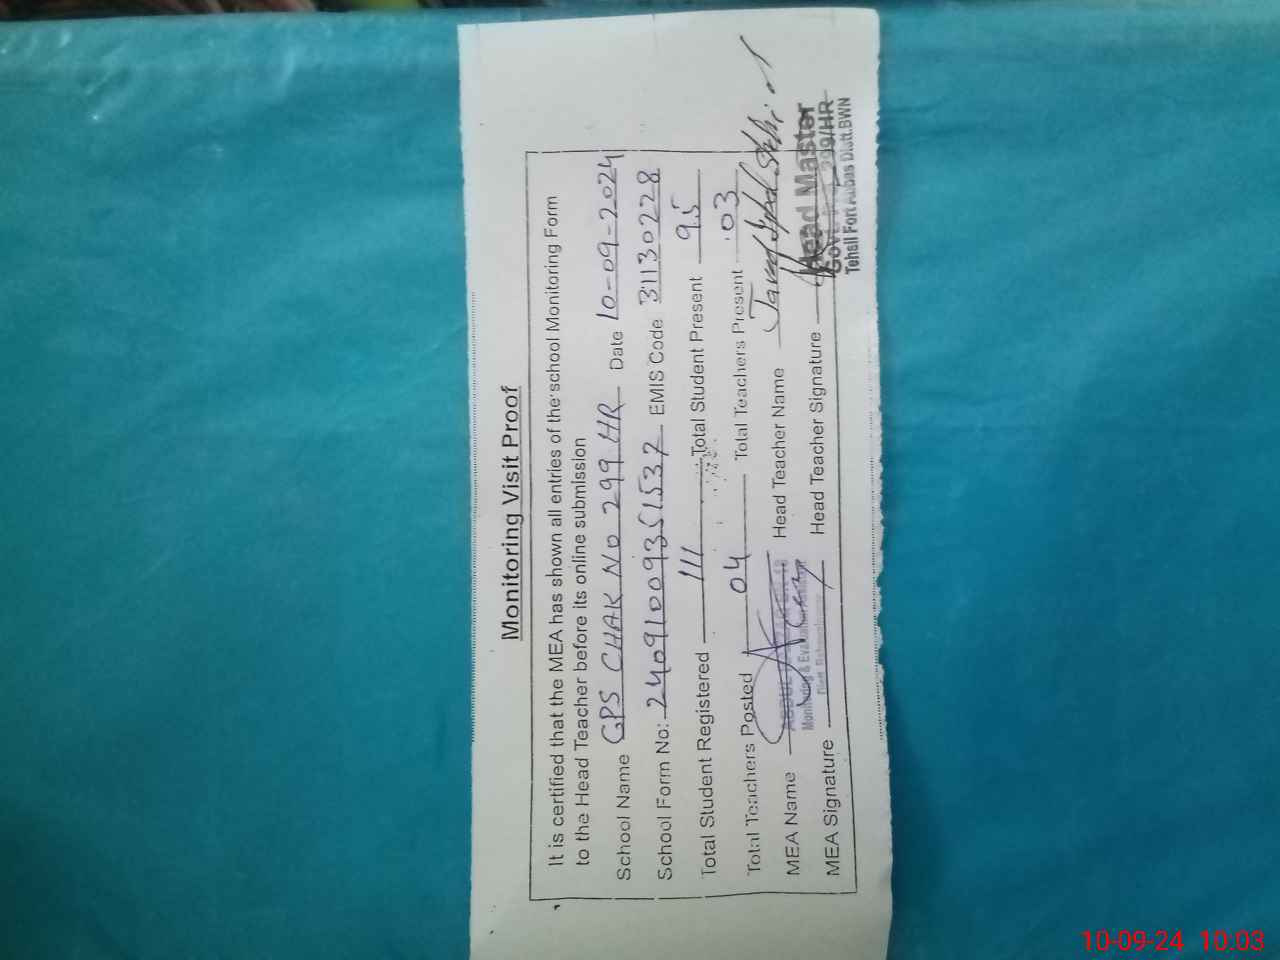 Monitoring Visit Proof
It is certified that the MEA has shown all entries of the school Monitoring Form
to the Head Teacher before its online submission
School Name GPS CHAK NO 299 HR Date 10-09-2024
School Form No: 24091009351537 EMIS Code 31130228
Total Student Registered 111 Total Student Present 95
Total Teachers Posted 04 Total Teachers Present 03
MEA Name Head Teacher Name Javed Iqbal
Monitoring & Evaluation
MEA Signature Head Teacher Signature
Head Master
Govt. 299/HR
Tehsil Fort Abbas Distt.BWN
10-09-24 10:03